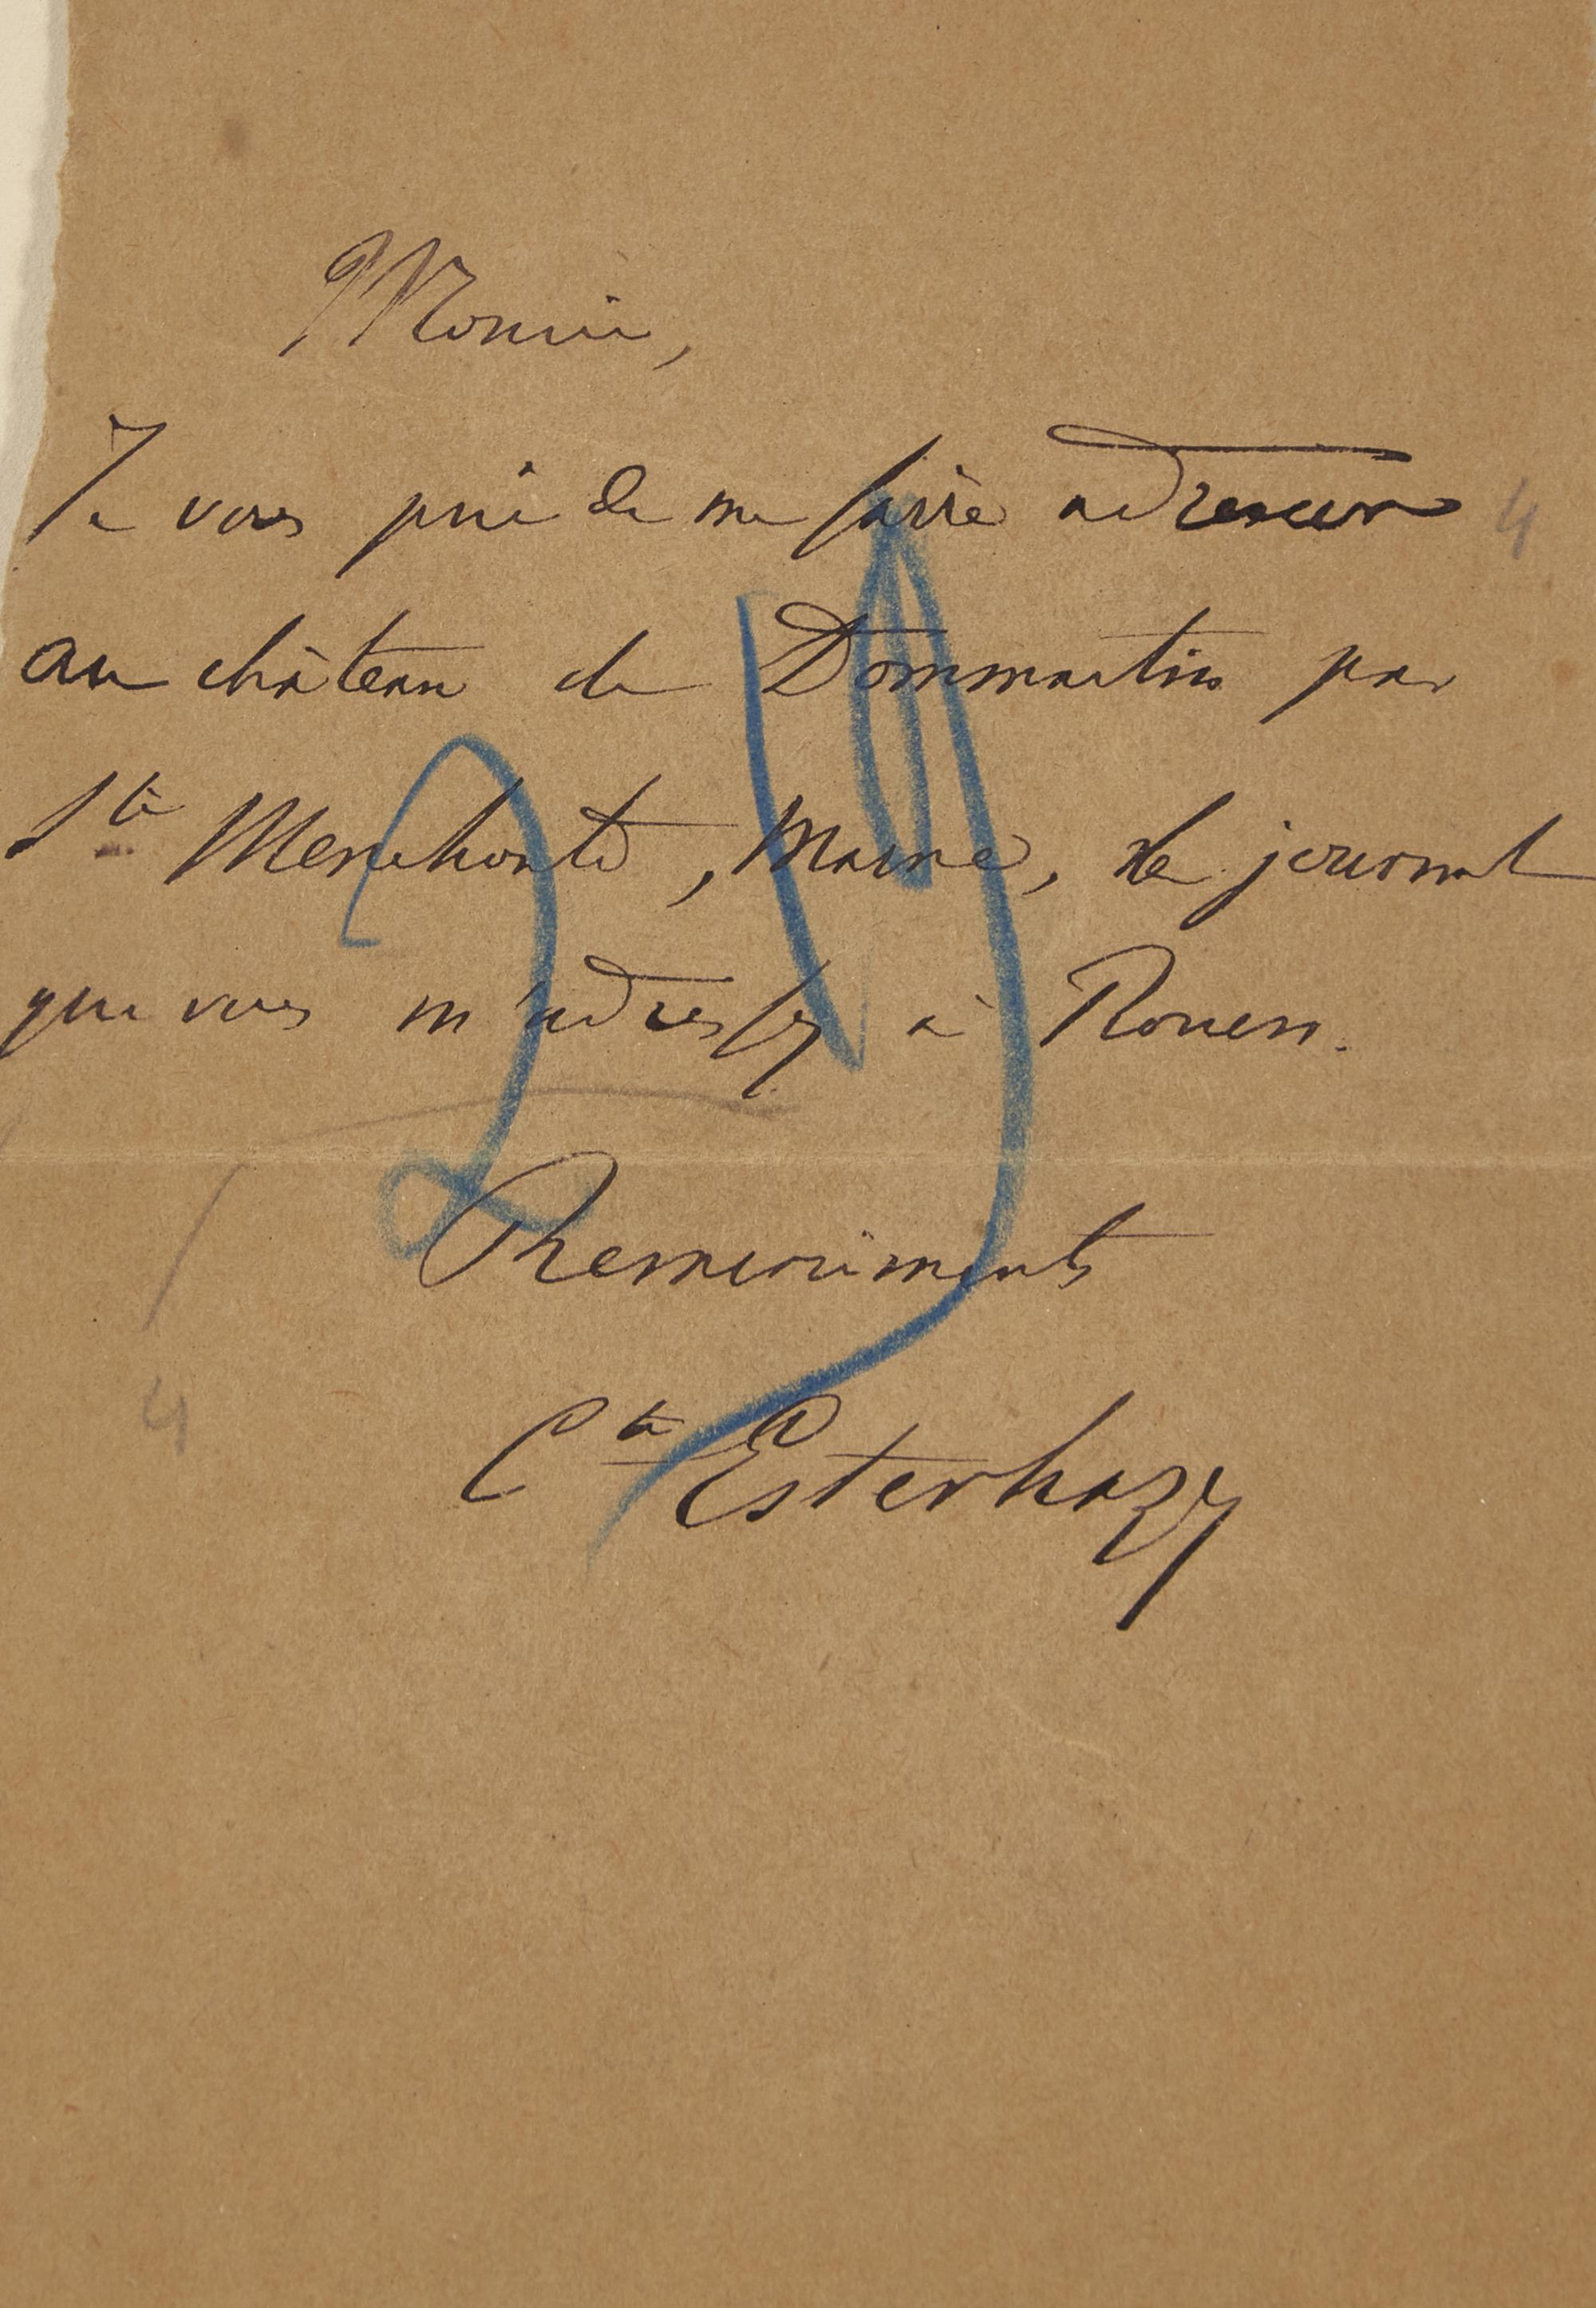 Monsieur,
Je vous prie de me faire adresser
4
au château de Dommartin par
Ste Menehould, Marne, le journal
que vous m'adressez à Rouen.
Remerciements
4
Cte Esterhazy